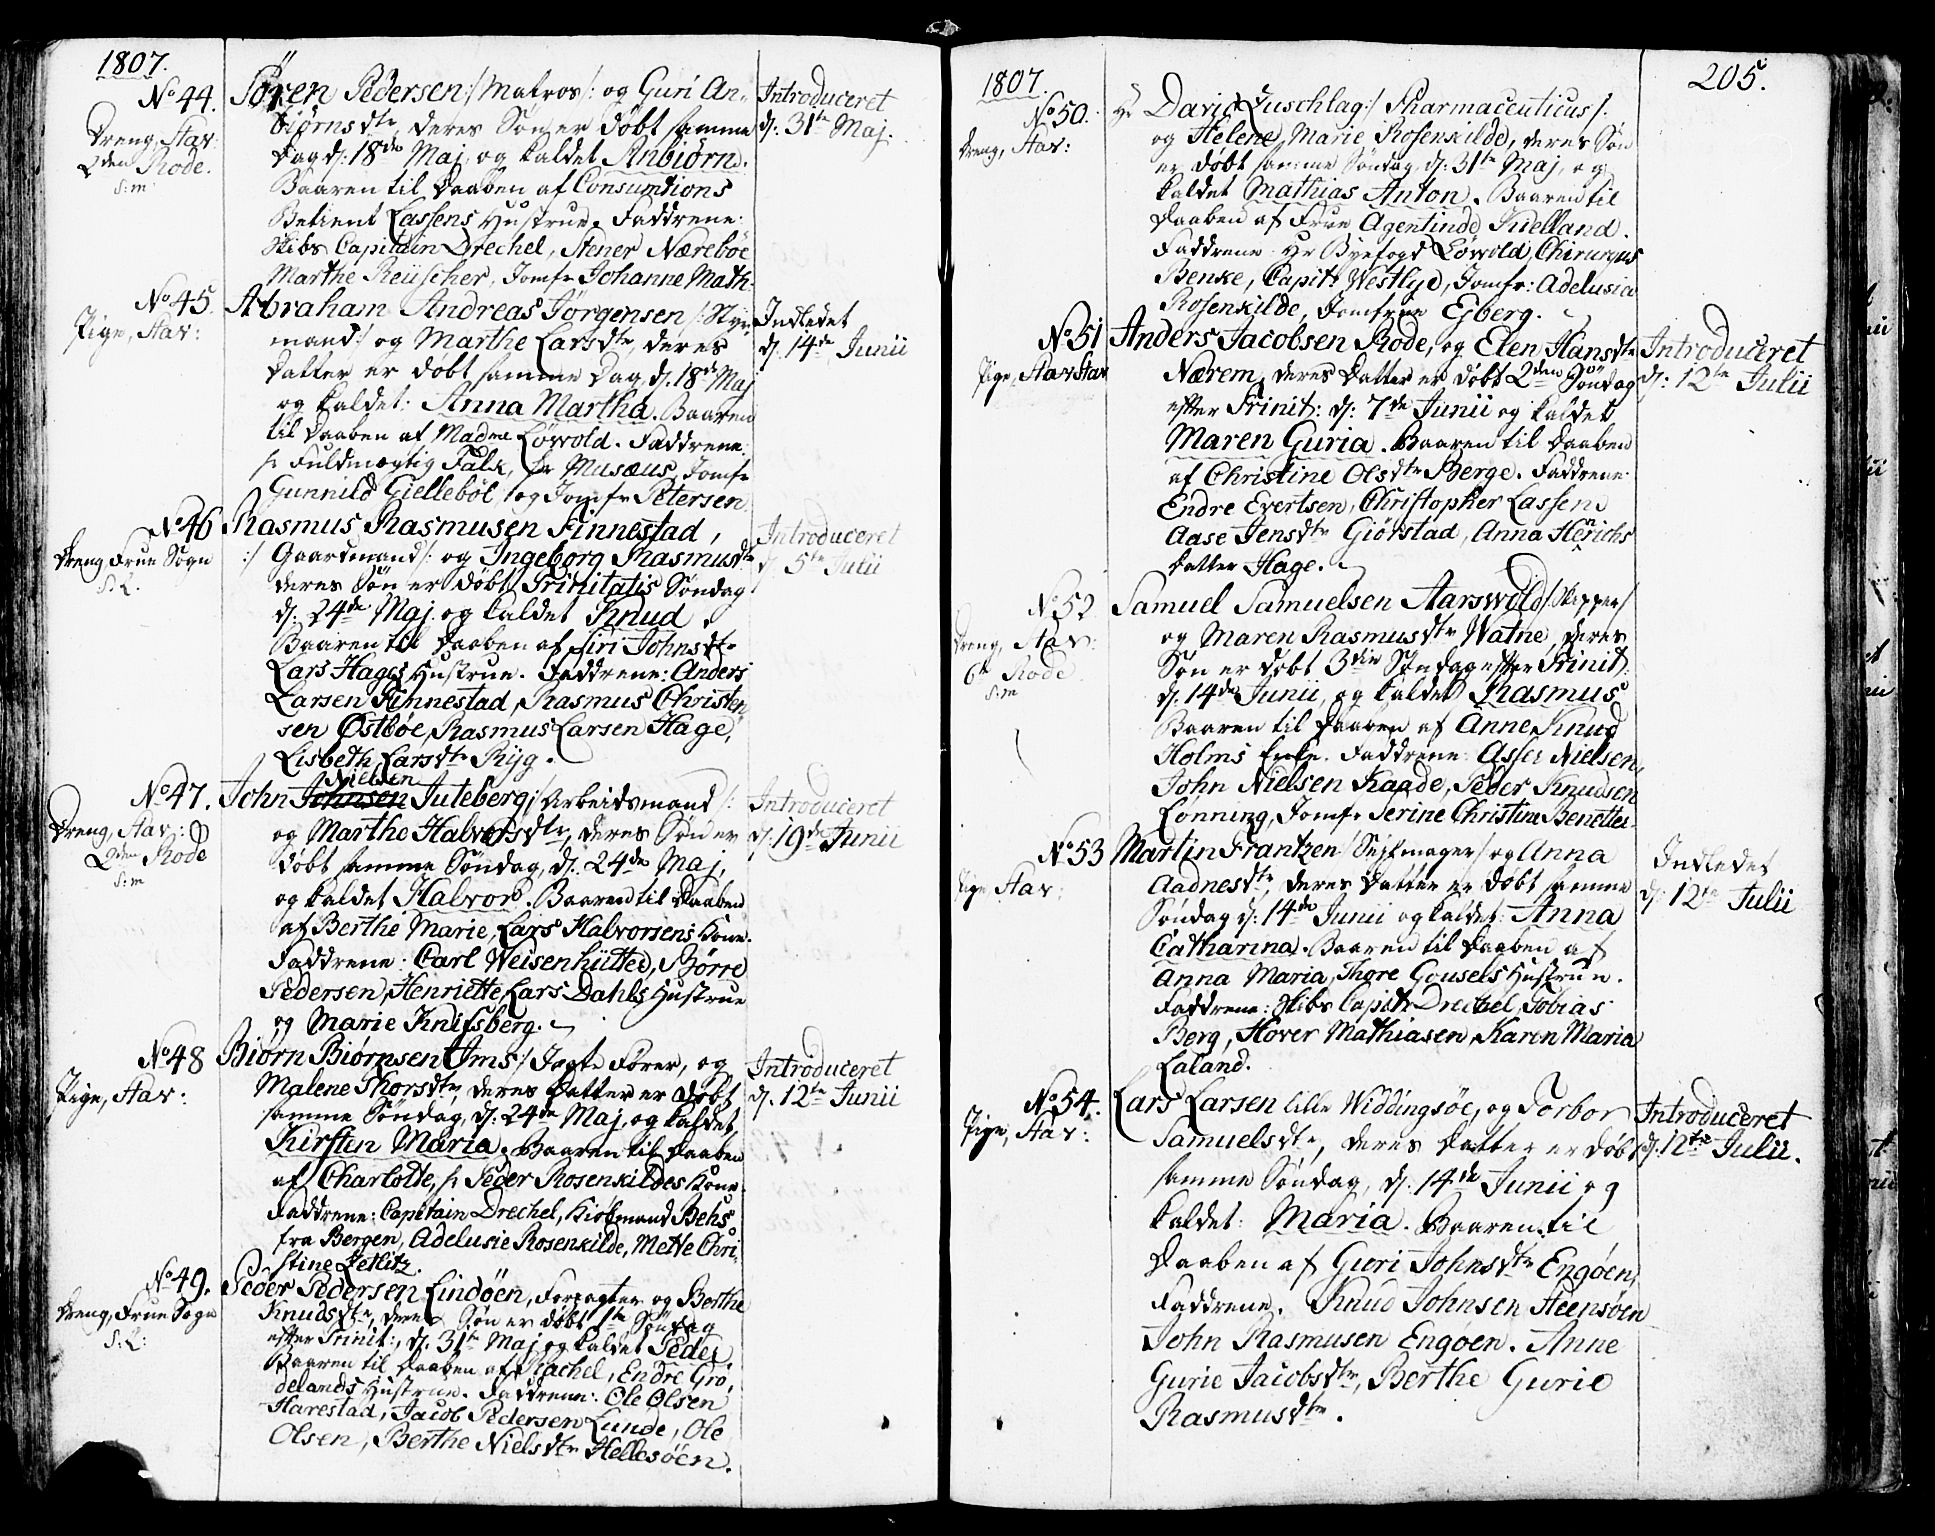 1807.
No 44.
Dreng, Stav:
2den Rode.
S:m
Sören Pedersen /: Matros /: og Guri An-
biørnsdtr, deres Søn er døbt samme
Dag d: 18de Maj, og kaldet Anbiørn.
Baaren til Daaben af Consumtions
Betient Lassens Hustrue. Faddrene:
Skibs Capitain Drechel, Stener Næreböe
Marthe Reuscher, Jomfr Johanne Math-
Introduceret
d: 31te Maj.
No 45.
Pige, Stav:
Abraham Andreas Jörgensen /: Styr-
mand /: og Marthe Larsdtr, deres
Datter er døbt samme Dag, d. 18de Maj
og kaldet: Anna Martha. Baaren
til Daaben af Madme Löwold. Faddrene:
Hr Fuldmægtig Falk, Hr Musæus, Jomfr
Gunnild Gielleböl, og Jomfr Petersen
Indledet
d. 14de Junii
No 46
Dreng, Frue Sogn
S:L.
Rasmus Rasmusen Finnestad,
:/ Gaardmand /: og Ingeborg Rasmusdtr
deres Søn er døbt Trinitatis Søndag
d: 24de Maj og kaldet Knud.
Baaren til Daaben af Siri Johnsdtr
Lars Hages Hustrue. Faddrene: Anders
Larsen Finnestad, Rasmus Christen-
sen Østbøe, Rasmus Larsen Hage,
Lisbeth Larsdtr Ryg.
Introduceret
d. 5te Julii
No 47.
Dreng, Stav:
2den Rode
S:m
Nielsen
John Johnsen Juteberg /: Arbeidsmand /:
og Marthe Halvorsdtr, deres Søn er
døbt samme Søndag, d. 24de Maj,
og kaldet Halvor. Baaren til Daaben
af Berthe Marie, Lars Halvorsens Kone.
Faddrene: Carl Weisenhütter, Børre
Pedersen, Henriette, Lars Dahls Hustrue
og Marie Knifsberg.
Introduceret
d. 19de Junii
No 48
Pige, Stav:
Biørn Biørnsen Ims /: Jagte Fører, og
Malene Thorsdtr, deres Datter er døbt
samme Søndag, d. 24de Maj, og kaldet,
Kirsten Maria. Baaren til Daaben
af Charlotte, Hr Peder Rosenkildes Kone.
Faddrene: Capitain Drechel, Kiøbmand Behs
fra Bergen, Adelusie Rosenkilde, Mette Chri-
stine Zetlitz.
Introduceret
d. 12te Junii
No 49.
Dreng, Frue Sogn
S:L:
Peder Pedersen Lindøen, Forpagter og Berthe
Knudsdtr, deres Søn er døbt 1te Søndag
efter Trinit:, d. 31te Maj og kaldet Peder.
Baaren til Daaben af Rachel, Endre Grø-
delands Hustrue. Faddrene: Ole Olsen
Harestad, Jacob Pedersen Lunde, Ole
Olsen, Berthe Nielsdtr Hellesøen.
1807.
205.
No 50.
Dreng, Stav:
Hr David Zuschlag /: Pharmaceuticus /:
og Helene Marie Rosenkilde, deres Søn
er døbt samme Søndag, d: 31te Maj, og
kaldet Mathias Anton. Baaren til
Daaben af Frue Agentinde Kielland.
Faddrene: Hr Byefogd Löwold, Chirurgus
Benke, Capit: Westlye, Jomfr: Adelusia
Rosenkilde, Jomfrue Egberg.
No 51
Pige, Stav Stav
Anders Jacobsen Rode, og Elen Hansdtr
Nærem, deres Datter er døbt 2den Søndag
efter Trinit: d: 7de Junii og kaldet
Maren Guria. Baaren til Daaben
af Christine Olsdtr Berge. Faddrene:
Endre Evertsen, Christopher Lassen,
Aase Jensdtr Giörstad, Anna Henrichs
Datter Hage.
Introduceret
d: 12te Julii
No 52
Dreng, Stav:
6te Rode.
S:m
Samuel Samuelsen Aarswold /: Skipper /
og Maren Rasmusdtr Watne, deres
Søn er døbt 3die Søndag efter Trinit:
d. 14de Junii, og kaldet Rasmus
Baaren til Daaben af Anne, Knud
Holms Enke. Faddrene: Asser Nielsen,
John Nielsen Kaade, Peder Knudsen
Lönning, Jomfr Serine Christine Benetter-
No 53
Pige, Stav:
Martin Frantzen /: Sejlmager /: og Anna
Aadnesdtr, deres Datter er døbt samme
Søndag d: 14de Junii og kaldet: Anna
Catharina. Baaren til Daaben af
Anna Maria, Thore Gousels Hustrue.
Faddrene: Skibs Capit: Drechel, Tobias
Berg, Hover Mathiasen, Karen Maria
Laland.
Indledet
d: 12te Julii
No 54.
Pige, Stav:
Lars Larsen lille Widdingsøe, og Torbor
Samuelsdtr, deres Datter er døbt
samme Søndag, d: 14de Junii og
kaldet: Maria. Baaren til
Daaben af Guri Johnsdtr Engøen,
Faddrene. Knud Johnsen Steensøen
John Rasmusen Engøen. Anne
Gurie Jacobsdtr, Berthe Gurie
Rasmusdtr.
Introduceret
d: 12te Julii.